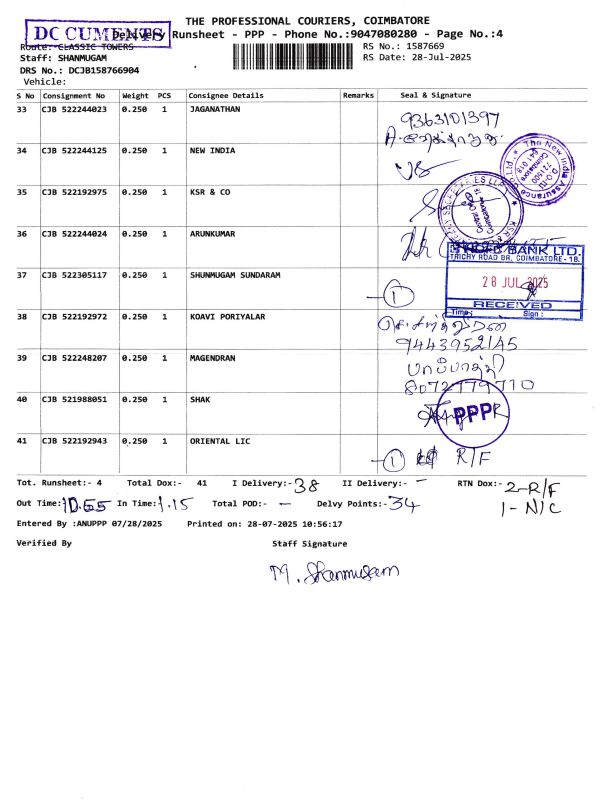 THE PROFESSIONAL COURIERS, COIMBATORE
DOCUMENTS
Delivery Runsheet - PPP - Phone No.:9047080280 - Page No.:4
Route: CLASSIC TOWERS
RS No.: 1587669
Staff: SHANMUGAM
RS Date: 28-Jul-2025
DRS No.: DCJB158766904
Vehicle:
S No Consignment No Weight PCS Consignee Details Remarks Seal & Signature
33 CJB 522244023 0.250 1 JAGANATHAN
9363101397
34 CJB 522244125 0.250 1 NEW INDIA
The New India Assurance Co. Ltd.
D.O.III
721500
Coimbatore
641 018
35 CJB 522192975 0.250 1 KSR & CO
36 CJB 522244024 0.250 1 ARUNKUMAR
BANK LTD.
TRICHY ROAD BR, COIMBATORE - 18.
37 CJB 522305117 0.250 1 SHUNMUGAM SUNDARAM
28 JUL 2025
1
RECEIVED
Time: Sign:
38 CJB 522192972 0.250 1 KOAVI PORIYALAR
9443952145
39 CJB 522248207 0.250 1 MAGENDRAN
8072779710
40 CJB 521988051 0.250 1 SHAK
PPP
41 CJB 522192943 0.250 1 ORIENTAL LIC
1 R/F
Tot. Runsheet:- 4 Total Dox:- 41 I Delivery:- 38 II Delivery:- - RTN Dox:- 2-R/F
1-N/C
Out Time: 10.55 In Time: 1.15 Total POD:- - Delvy Points:- 34
Entered By :ANUPPP 07/28/2025 Printed on: 28-07-2025 10:56:17
Verified By Staff Signature
M. Shanmugam